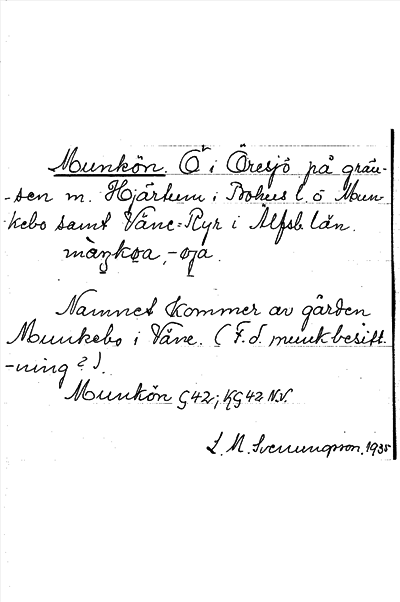 Munkön. Ö i Öresjö på grän-
-sen m. Hjärtum i Bohus l. o Mun-
-kebo samt Väne-Ryr i Älfsb. län.
Namnet kommer av gården
Munkebo i Väne. (F.d. munkbesitt-
-ning?).
Munkön G42; KG42 N.V.
L. M. Svenungsson. 1935